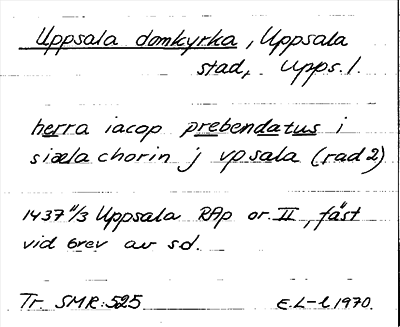 Uppsala domkyrka, Uppsala
stad, Upps. l.
herra iacop prebendatus i
siælachorin j vpsala (rad 2)
1437 11/3 Uppsala RAp or. II, fäst
vid brev av s.d.
Tr. SMR: 525 E. L-l 1970.